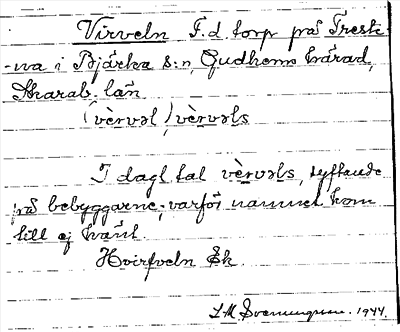 Virveln F.d. torp på Treste-
-na i Bjärka s:n, Gudhems härad,
Skarab. län.
(vèrvəl) vèrvəls
I dagl. tal vèrvəls, syftande
på bebyggarne; varför namnet kom
till ej känt.
Hvirfveln Ek.
1944.